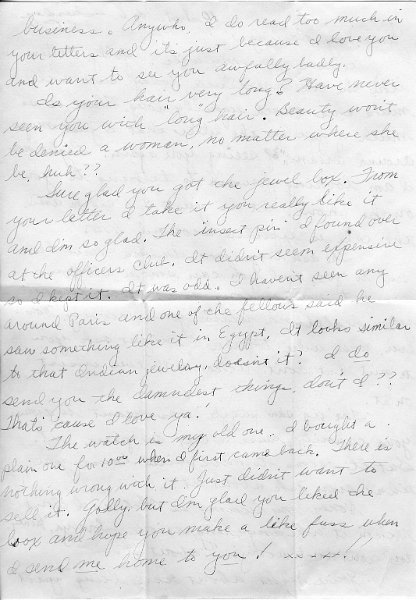 business. Anywho, I do read too much in
your letters and it's just because I love you
and want to see you awfully badly.
Is your hair very long? Have never
seen you with "long" hair. Beauty won't
be denied a woman, no matter where she
be, huh??
Sure glad you got the jewel box. From
your letter I take it you really like it
and I'm so glad. The insect pin I found over
at the officers club. It didn't seem expensive
so I kept it. It was odd. I haven't seen any
around Paris and one of the fellows said he
saw something like it in Egypt. It looks similar
to that Indian jewelry, doesn't it? I do
send you the damndest things, don't I??
That's 'cause I love ya!
The watch is my old one. I bought a
plain one for 10.00 when I first came back. There is
nothing wrong with it. Just didn't want to
sell it. Golly, but I'm glad you liked the
box and hope you make a like fuss when
I send me home to you!